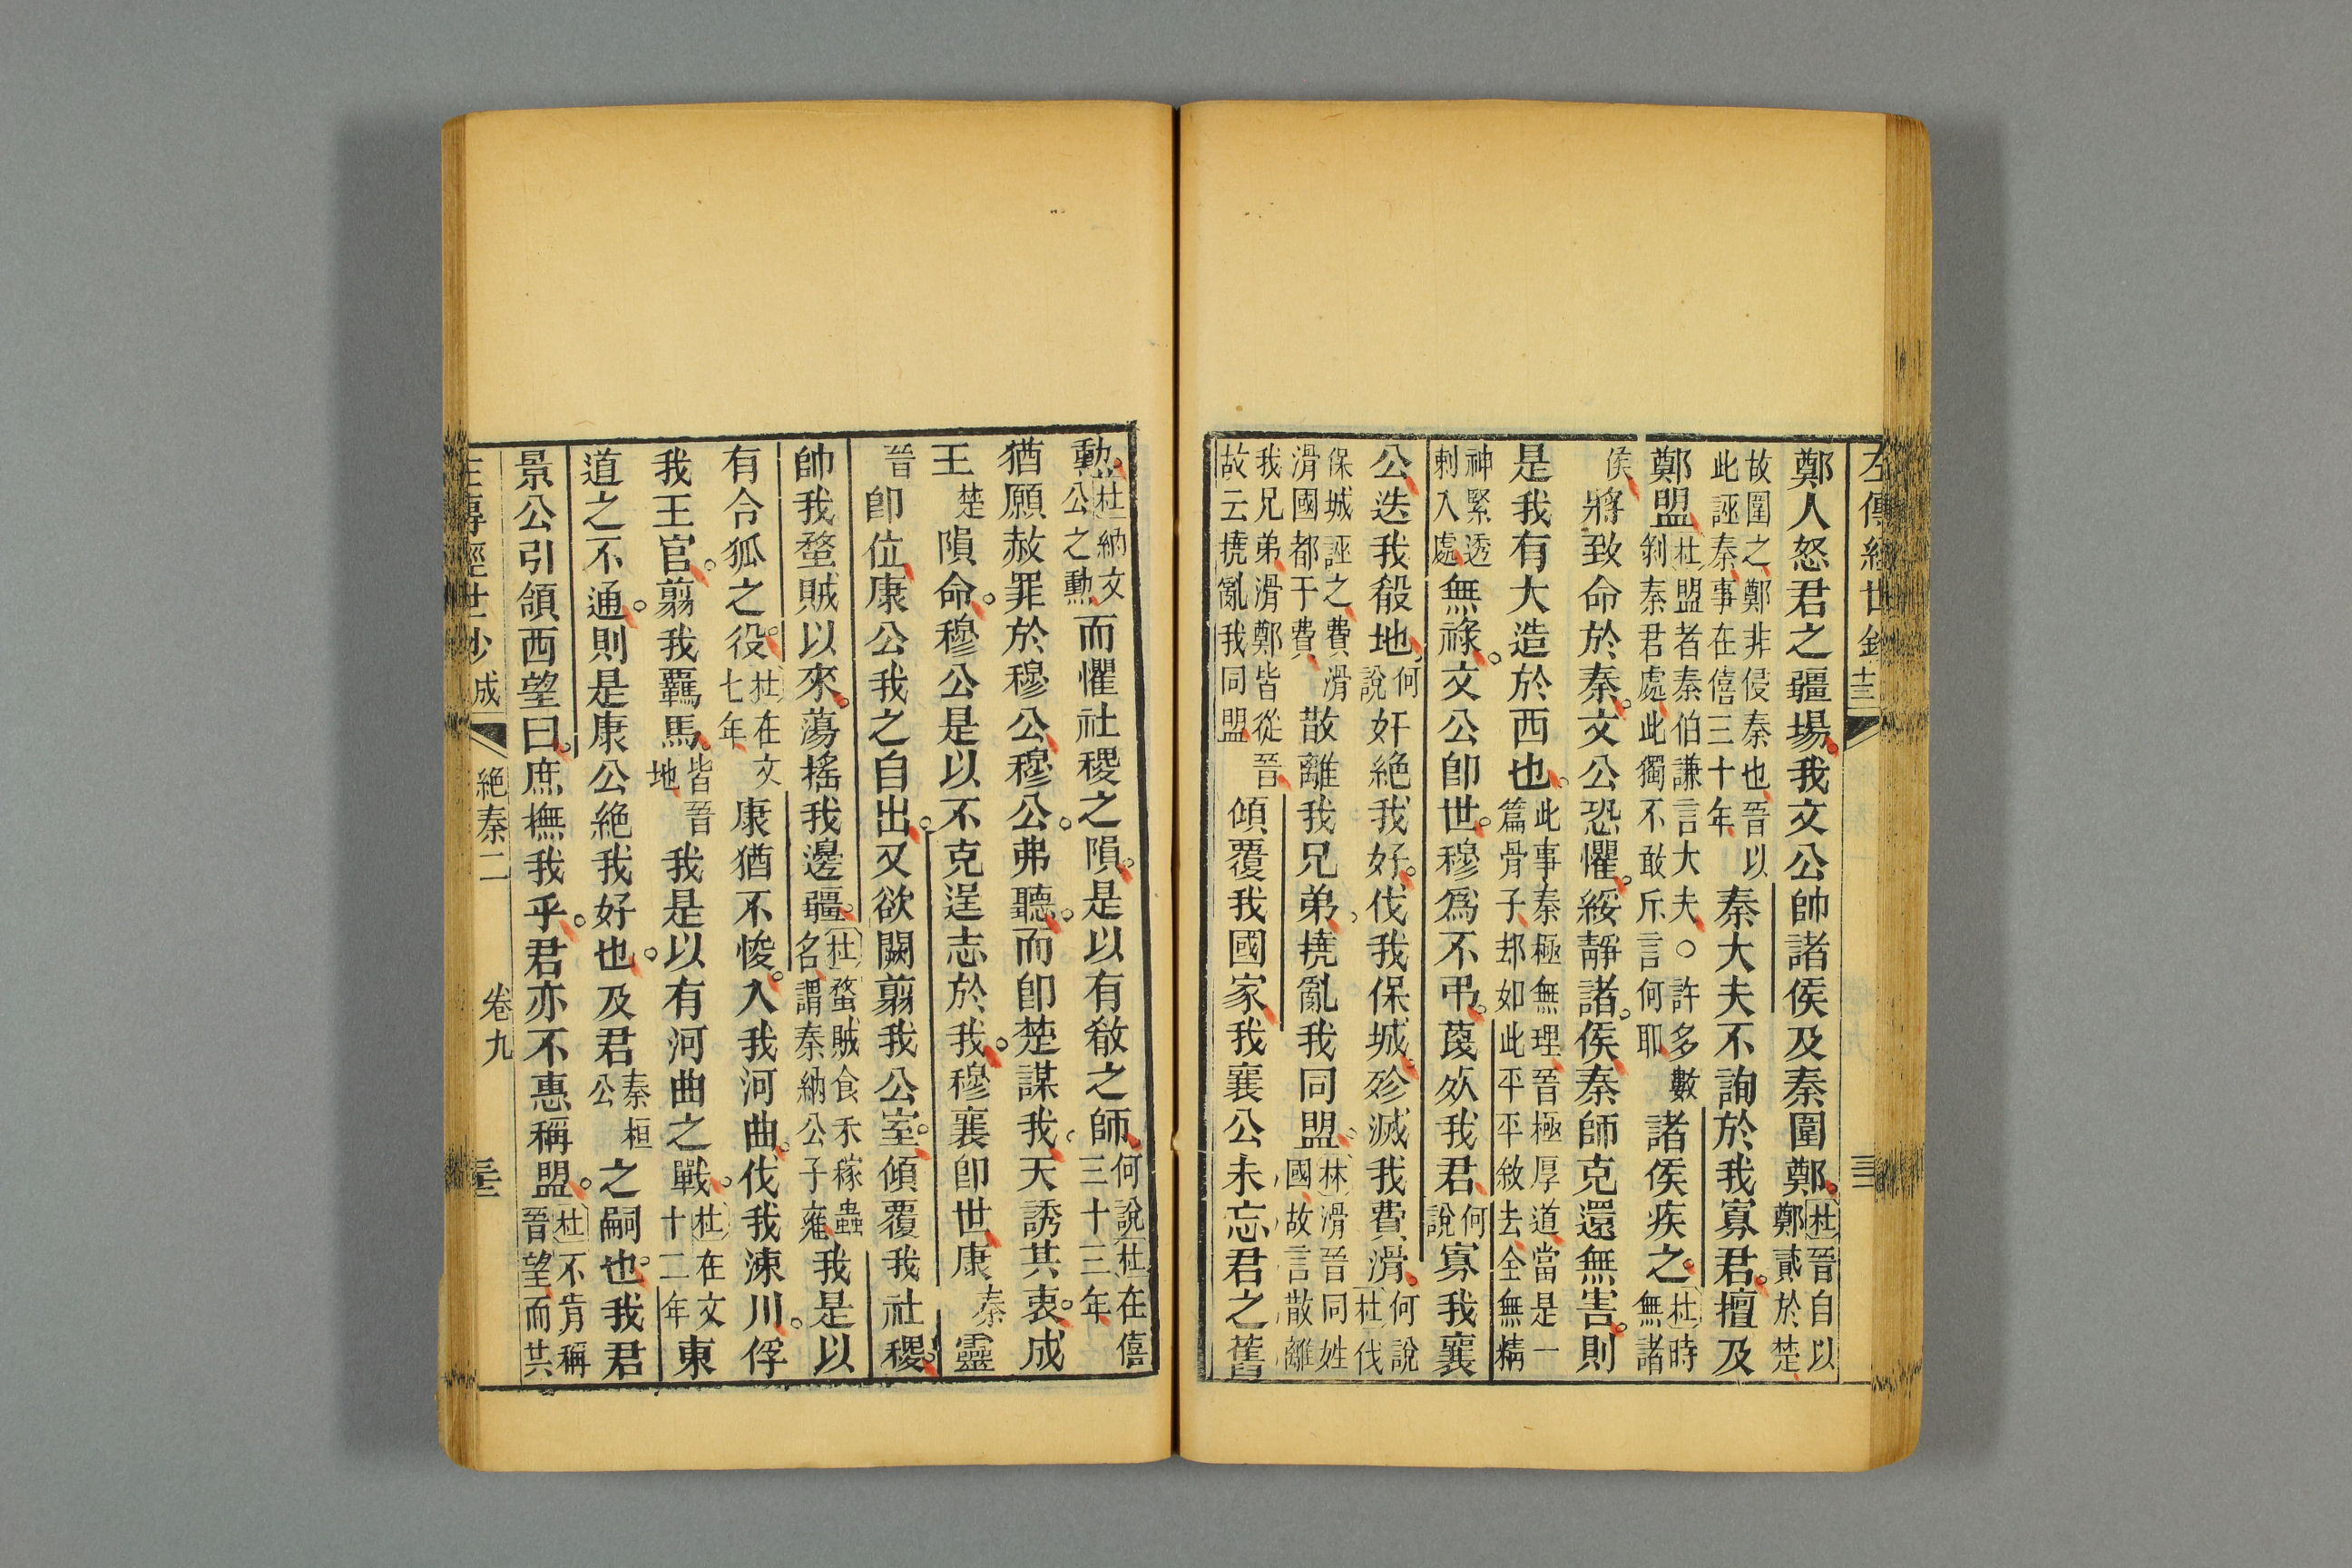 左傳經世鈔
鄭人怒君之疆場我文公帥諸侯及秦圍鄭杜晉自以鄭貳於楚
故圍之鄭非侵秦也晉以此誣秦事在僖三十年秦大夫不詢於我寡君擅及
鄭盟杜盟者秦伯謙言大夫○許多數剝秦君處此獨不敢斥言何耶諸侯疾之杜時無諸
侯將致命於秦文公恐懼綏靜諸侯秦師克還無害則
是我有大造於西也此事秦極無理晉極厚道當是一篇骨子却如此平平敘去全無精
神緊透刺入處無祿文公卽世穆爲不弔蔑死我君何說寡我襄
公迭我殽地何說奸絕我好伐我保城殄滅我費滑何說杜伐
保城誣之費滑滑國都于費散離我兄弟撓亂我同盟林滑晉同姓國故言散離
我兄弟滑鄭皆從晉故云撓亂我同盟傾覆我國家我襄公未忘君之舊
勳杜納文公之勳而懼社稷之隕是以有殽之師何說杜在僖三十三年
猶願赦罪於穆公穆公弗聽而卽楚謀我天誘其衷成
王楚隕命穆公是以不克逞志於我穆襄卽世康秦靈
晉卽位康公我之自出又欲闕翦我公室傾覆我社稷
帥我蝥賊以來蕩搖我邊疆杜蝥賊食禾稼蟲名謂秦納公子雍我是以
有令狐之役杜在文七年康猶不悛入我河曲伐我涑川俘
我王官翦我羈馬皆晉地我是以有河曲之戰杜在文十二年東
道之不通則是康公絕我好也及君秦桓公之嗣也我君
景公引領西望曰庶撫我乎君亦不惠稱盟杜不肯稱晉望而共
左傳經世鈔 成 絕秦二 卷九